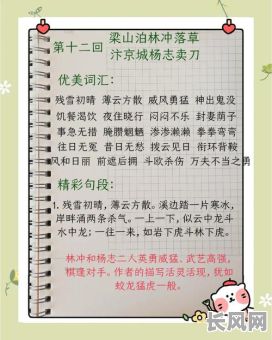 第十二回
梁山泊林冲落草
汴京城杨志卖刀
优美词汇:
残雪初晴 薄云方散 威风勇猛 神出鬼没
饥餐渴饮 夜住晓行 闷闷不乐 封妻荫子
事急无措 腌臜魍魉 渗渗濑濑 拳拳弯弯
往日无冤 昔日无愁 拨云见日 衔环背鞍
风和日丽 前遮后拥 斗欧杀伤 万夫不当之勇
精彩句段:
1.残雪初晴,薄云方散。溪边踏一片寒冰,
岸畔涌两条杀气。一上一下,似云中龙斗
水中龙;一往一来,如岩下虎斗林下虎。
林冲和杨志二人英勇威猛,武艺高强,
棋逢对手。作者的描写活灵活现,犹如
蛟龙猛虎一般。
长风网